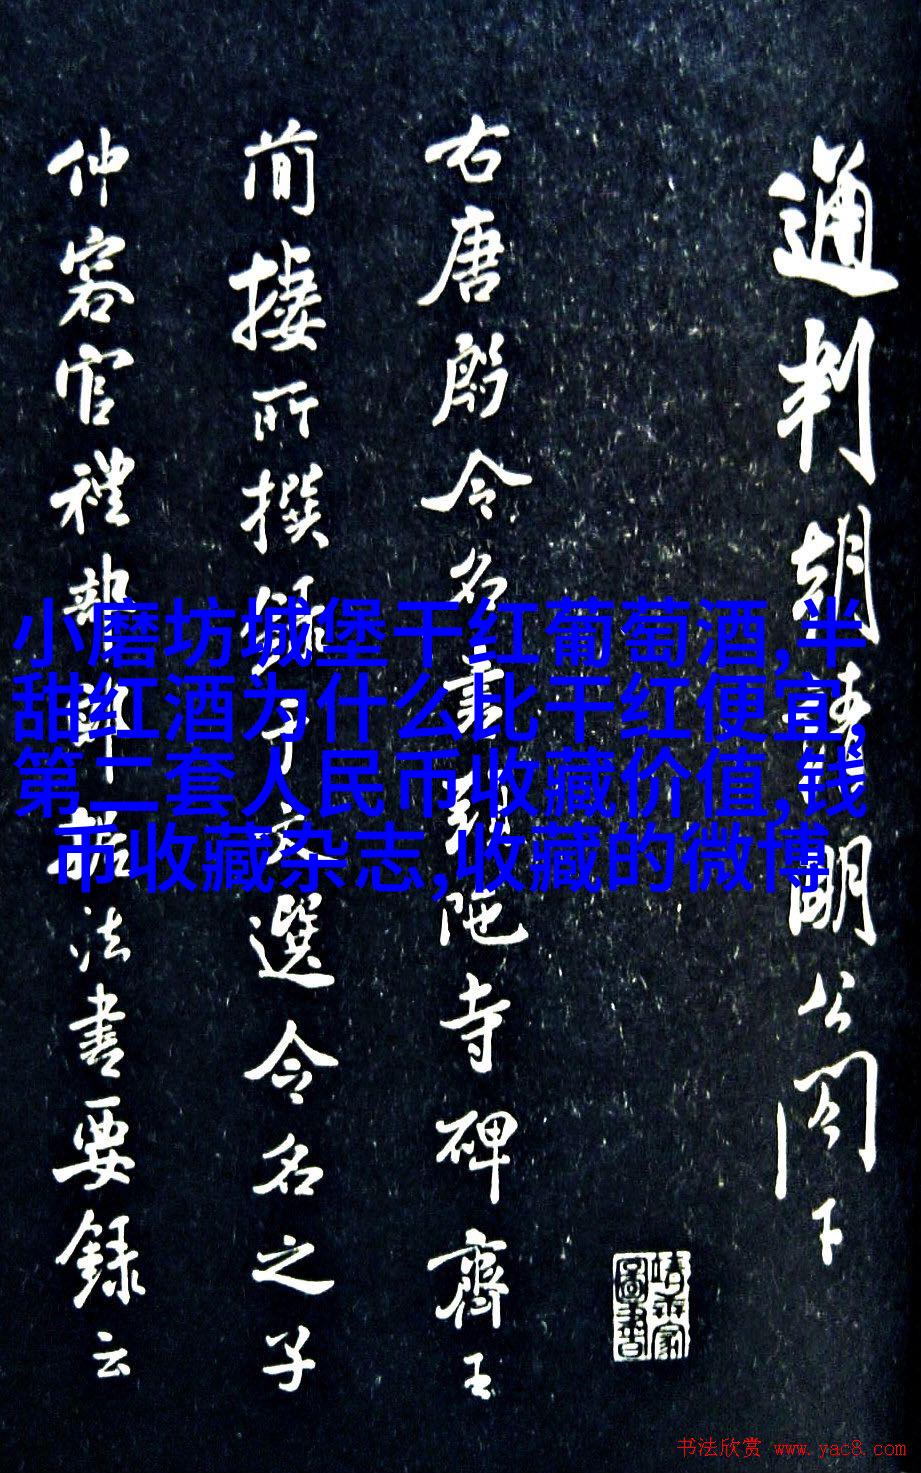 通判胡靖明公閣下
右唐殷令名書頭陁寺碑齊王
蕳捿所撰錄于文選令名之子
仲容官禮部郎中能法書要録云
小磨坊城堡干红葡萄酒,半
甜红酒为什么比干红便宜,
第二套人民币收藏价值,钱
币收藏杂志,收藏的微博
书法欣赏 www.yac8.com